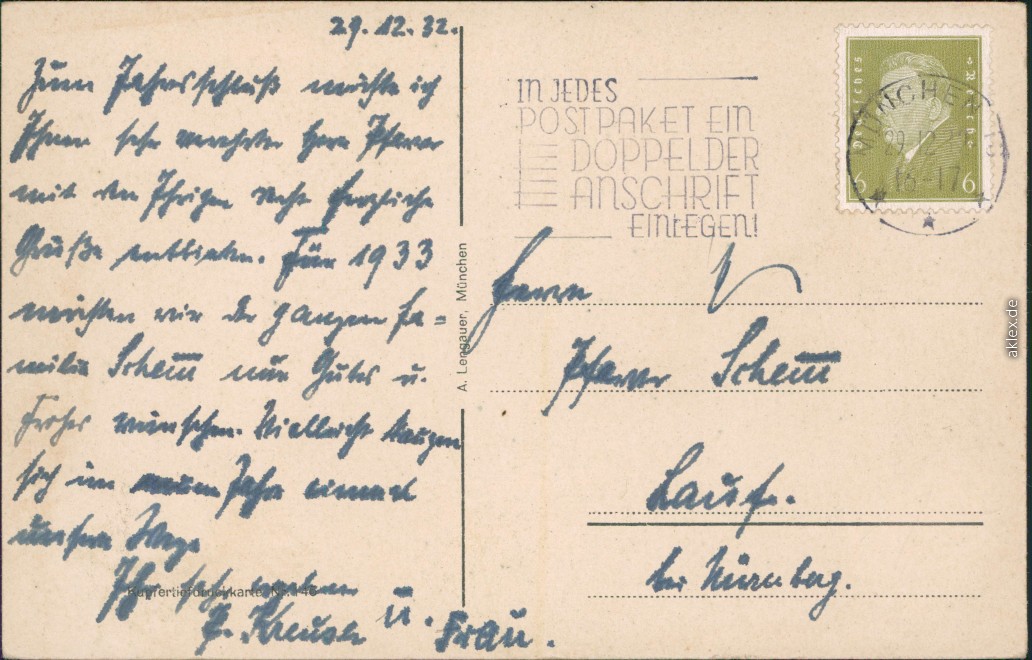 29.12.32.
Zum Jahresschluß möchte ich
Ihnen sehr verehrter Herr Pfarrer
mit den Ihrigen recht herzliche
Grüße entbieten. Für 1933
möchten wir der ganzen Fa=
milie Schem̅ nur Gutes u.
Frohes wünschen. Vielleicht kreuzen
sich im neuen Jahr einmal
unsere Wege
Ihr sehr ergebener
u. Frau.
A. Lengauer, München
Kupfertiefdruckkarte Nr. 146
IN JEDES
POSTPAKET EIN
DOPPEL DER
ANSCHRIFT
EINLEGEN!
Deutsches Reich
6 6
MÜNCHEN
29.12.
16-17
Herrn
Pfarrer Schem̅
Lauf.
bei Nürnberg.
aklex.de